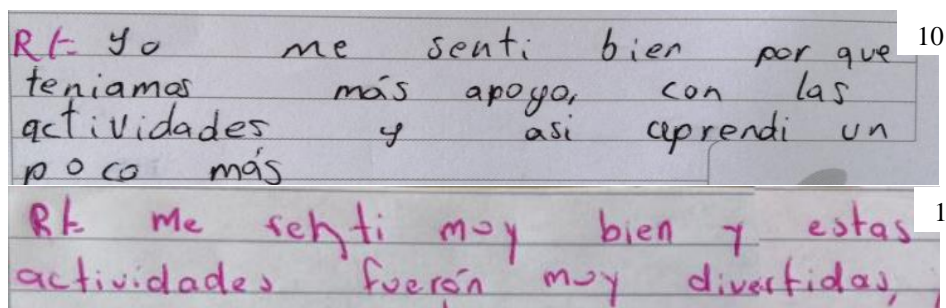 R/= Yo me senti bien por que 10
teniamos más apoyo, con las
actividades y asi aprendi un
poco más
R/= Me senti muy bien y estas 1
actividades fuerón muy divertidas,